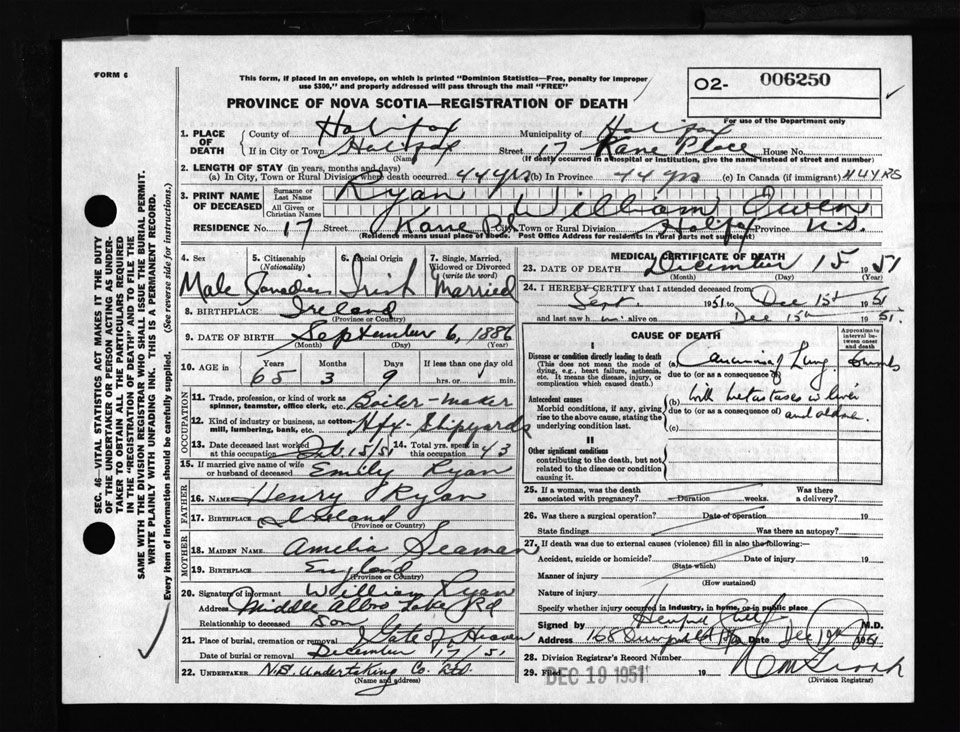 FORM 6
This form, if placed in an envelope, on which is printed "Dominion Statistics—Free, penalty for improper
use $300," and properly addressed will pass through the mail "FREE"
O2- 006250
PROVINCE OF NOVA SCOTIA—REGISTRATION OF DEATH
For use of the Department only
SEC. 46—VITAL STATISTICS ACT MAKES IT THE DUTY
OF THE UNDERTAKER OR PERSON ACTING AS UNDER-
TAKER TO OBTAIN ALL THE PARTICULARS REQUIRED
IN THE "REGISTRATION OF DEATH" AND TO FILE THE
SAME WITH THE DIVISION REGISTRAR WHO SHALL ISSUE THE BURIAL PERMIT.
WRITE PLAINLY WITH UNFADING INK. THIS IS A PERMANENT RECORD.
Every item of information should be carefully supplied. (See reverse side for instructions.)
1. PLACE OF DEATH County of Halifax Municipality of Halifax
If in City or Town Halifax Street 17 Kane Place House No.
(Name) (If death occurred in a hospital or institution, give the name instead of street and number)
2. LENGTH OF STAY (in years, months and days)
(a) In City, Town or Rural Division where death occurred 44 yrs (b) In Province 44 yrs (c) In Canada (if immigrant) 44 YRS
3. PRINT NAME OF DECEASED Surname or Last Name Ryan
All Given or Christian Names William Owen
RESIDENCE No. 17 Street Kane Pl. City, Town or Rural Division Halifx Province N.S.
(Residence means usual place of abode. Post Office Address for residents in rural parts not sufficient)
4. Sex 5. Citizenship (Nationality) 6. Racial Origin 7. Single, Married, Widowed or Divorced (write the word)
Male Canadian Irish Married
8. BIRTHPLACE Ireland
(Province or Country)
9. DATE OF BIRTH September 6, 1886
(Month) (Day) (Year)
10. AGE Years Months Days If less than one day old
65 3 9 hrs. or min.
OCCUPATION
11. Trade, profession, or kind of work as spinner, teamster, office clerk, etc. Boiler-maker
12. Kind of industry or business, as cotton-mill, lumbering, bank, etc. Hfx-Shipyards
13. Date deceased last worked at this occupation 15/51 14. Total yrs. spent in this occupation 43
15. If married give name of wife or husband of deceased Emily Ryan
FATHER
16. NAME Henry Ryan
17. BIRTHPLACE Ireland
(Province or Country)
MOTHER
18. MAIDEN NAME Amelia Seaman
19. BIRTHPLACE England
(Province or Country)
20. Signature of informant William Ryan
Address Middle Albro Lake Rd
Relationship to deceased Son
21. Place of burial, cremation or removal Gate of Heaven
Date of burial or removal December 17/51
22. UNDERTAKER N.B. Undertaking Co. Ltd.
(Name and address)
MEDICAL CERTIFICATE OF DEATH
23. DATE OF DEATH December 15 1951
(Month) (Day) (Year)
24. I HEREBY CERTIFY that I attended deceased from
Sept. 1951 to Dec 15th 1951
and last saw h im alive on Dec 15th 1951.
CAUSE OF DEATH
Approximate interval between onset and death
I
Disease or condition directly leading to death (a) Carcinoma of Lung
(This does not mean the mode of dying, e.g., heart failure, asthenia, etc. It means the disease, injury, or complication which caused death.)
due to (or as a consequence of)
Antecedent causes (b) with metastases to liver
Morbid conditions, if any, giving rise to the above cause, stating the underlying condition last.
due to (or as a consequence of)
(c)
II
Other significant conditions
contributing to the death, but not related to the disease or condition causing it.
25. If a woman, was the death associated with pregnancy? Duration weeks. Was there a delivery?
26. Was there a surgical operation? Date of operation 19
State findings Was there an autopsy?
27. If death was due to external causes (violence) fill in also the following:—
Accident, suicide or homicide? Date of injury 19
(State which)
Manner of injury
(How sustained)
Nature of injury
Specify whether injury occurred in industry, in home, or in public place
Signed by M.D.
Address 168 Date Dec 1951
28. Division Registrar's Record Number
29. Filed DEC 19 1951
(Division Registrar)